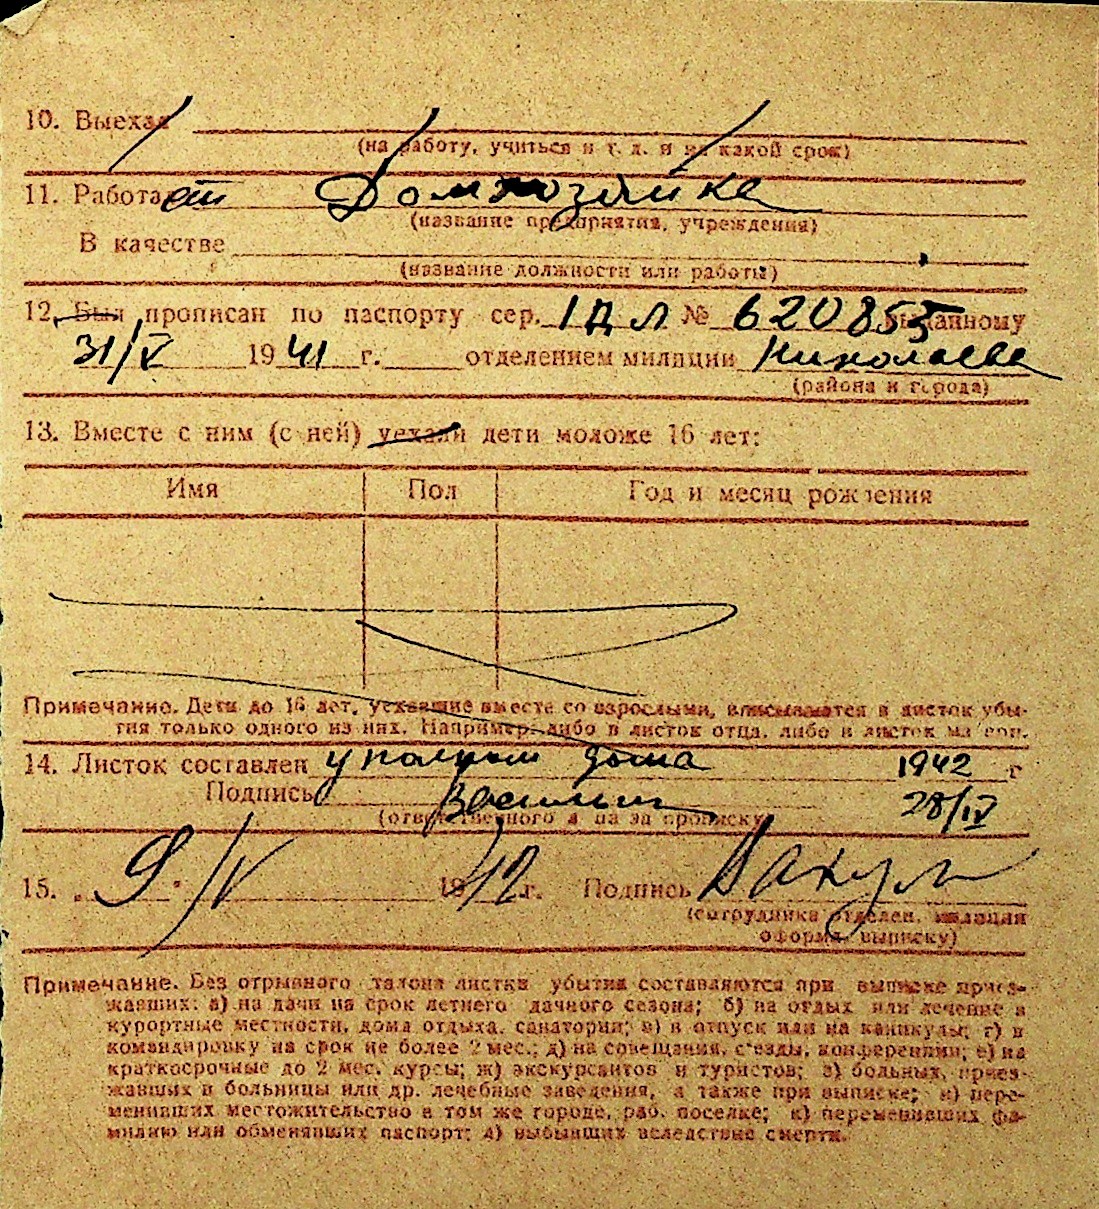 10. Выехал
(на работу, учиться и т. д. и на какой срок)
11. Работает Домхозяйка
(название предприятия, учреждения)
В качестве
(название должности или работы)
12. Был прописан по паспорту сер. I Д Л № 620855 выданному
31/V 1941 г. отделением милиции Николаева
(района и города)
13. Вместе с ним (с ней) уехали дети моложе 16 лет:
Имя Пол Год и месяц рождения
Примечание. Дети до 16 лет, уехавшие вместе со взрослыми, вписываются в листок убы-
тия только одного из них. Например: либо в листок отца, либо в листок матери.
14. Листок составлен дома 1942 г
Подпись 28/IV
(ответственного лица за прописку)
15. „9“/V 1942 г. Подпись
(сотрудника отделен. милиции
оформ. выписку)
Примечание. Без отрывного талона листки убытия составляются при выписке приез-
жавших: а) на дачи на срок летнего дачного сезона; б) на отдых или лечение в
курортные местности, дома отдыха, санатории; в) в отпуск или на каникулы; г) в
командировку на срок не более 2 мес.; д) на совещания, съезды, конференции; е) на
краткосрочные до 2 мес. курсы; ж) экскурсантов и туристов; з) больных, приез-
жавших в больницы или др. лечебные заведения, а также при выписке; и) пере-
менивших местожительство в том же городе, раб. поселке; к) переменивших фа-
милию или обменявших паспорт; л) выбывших вследствие смерти.